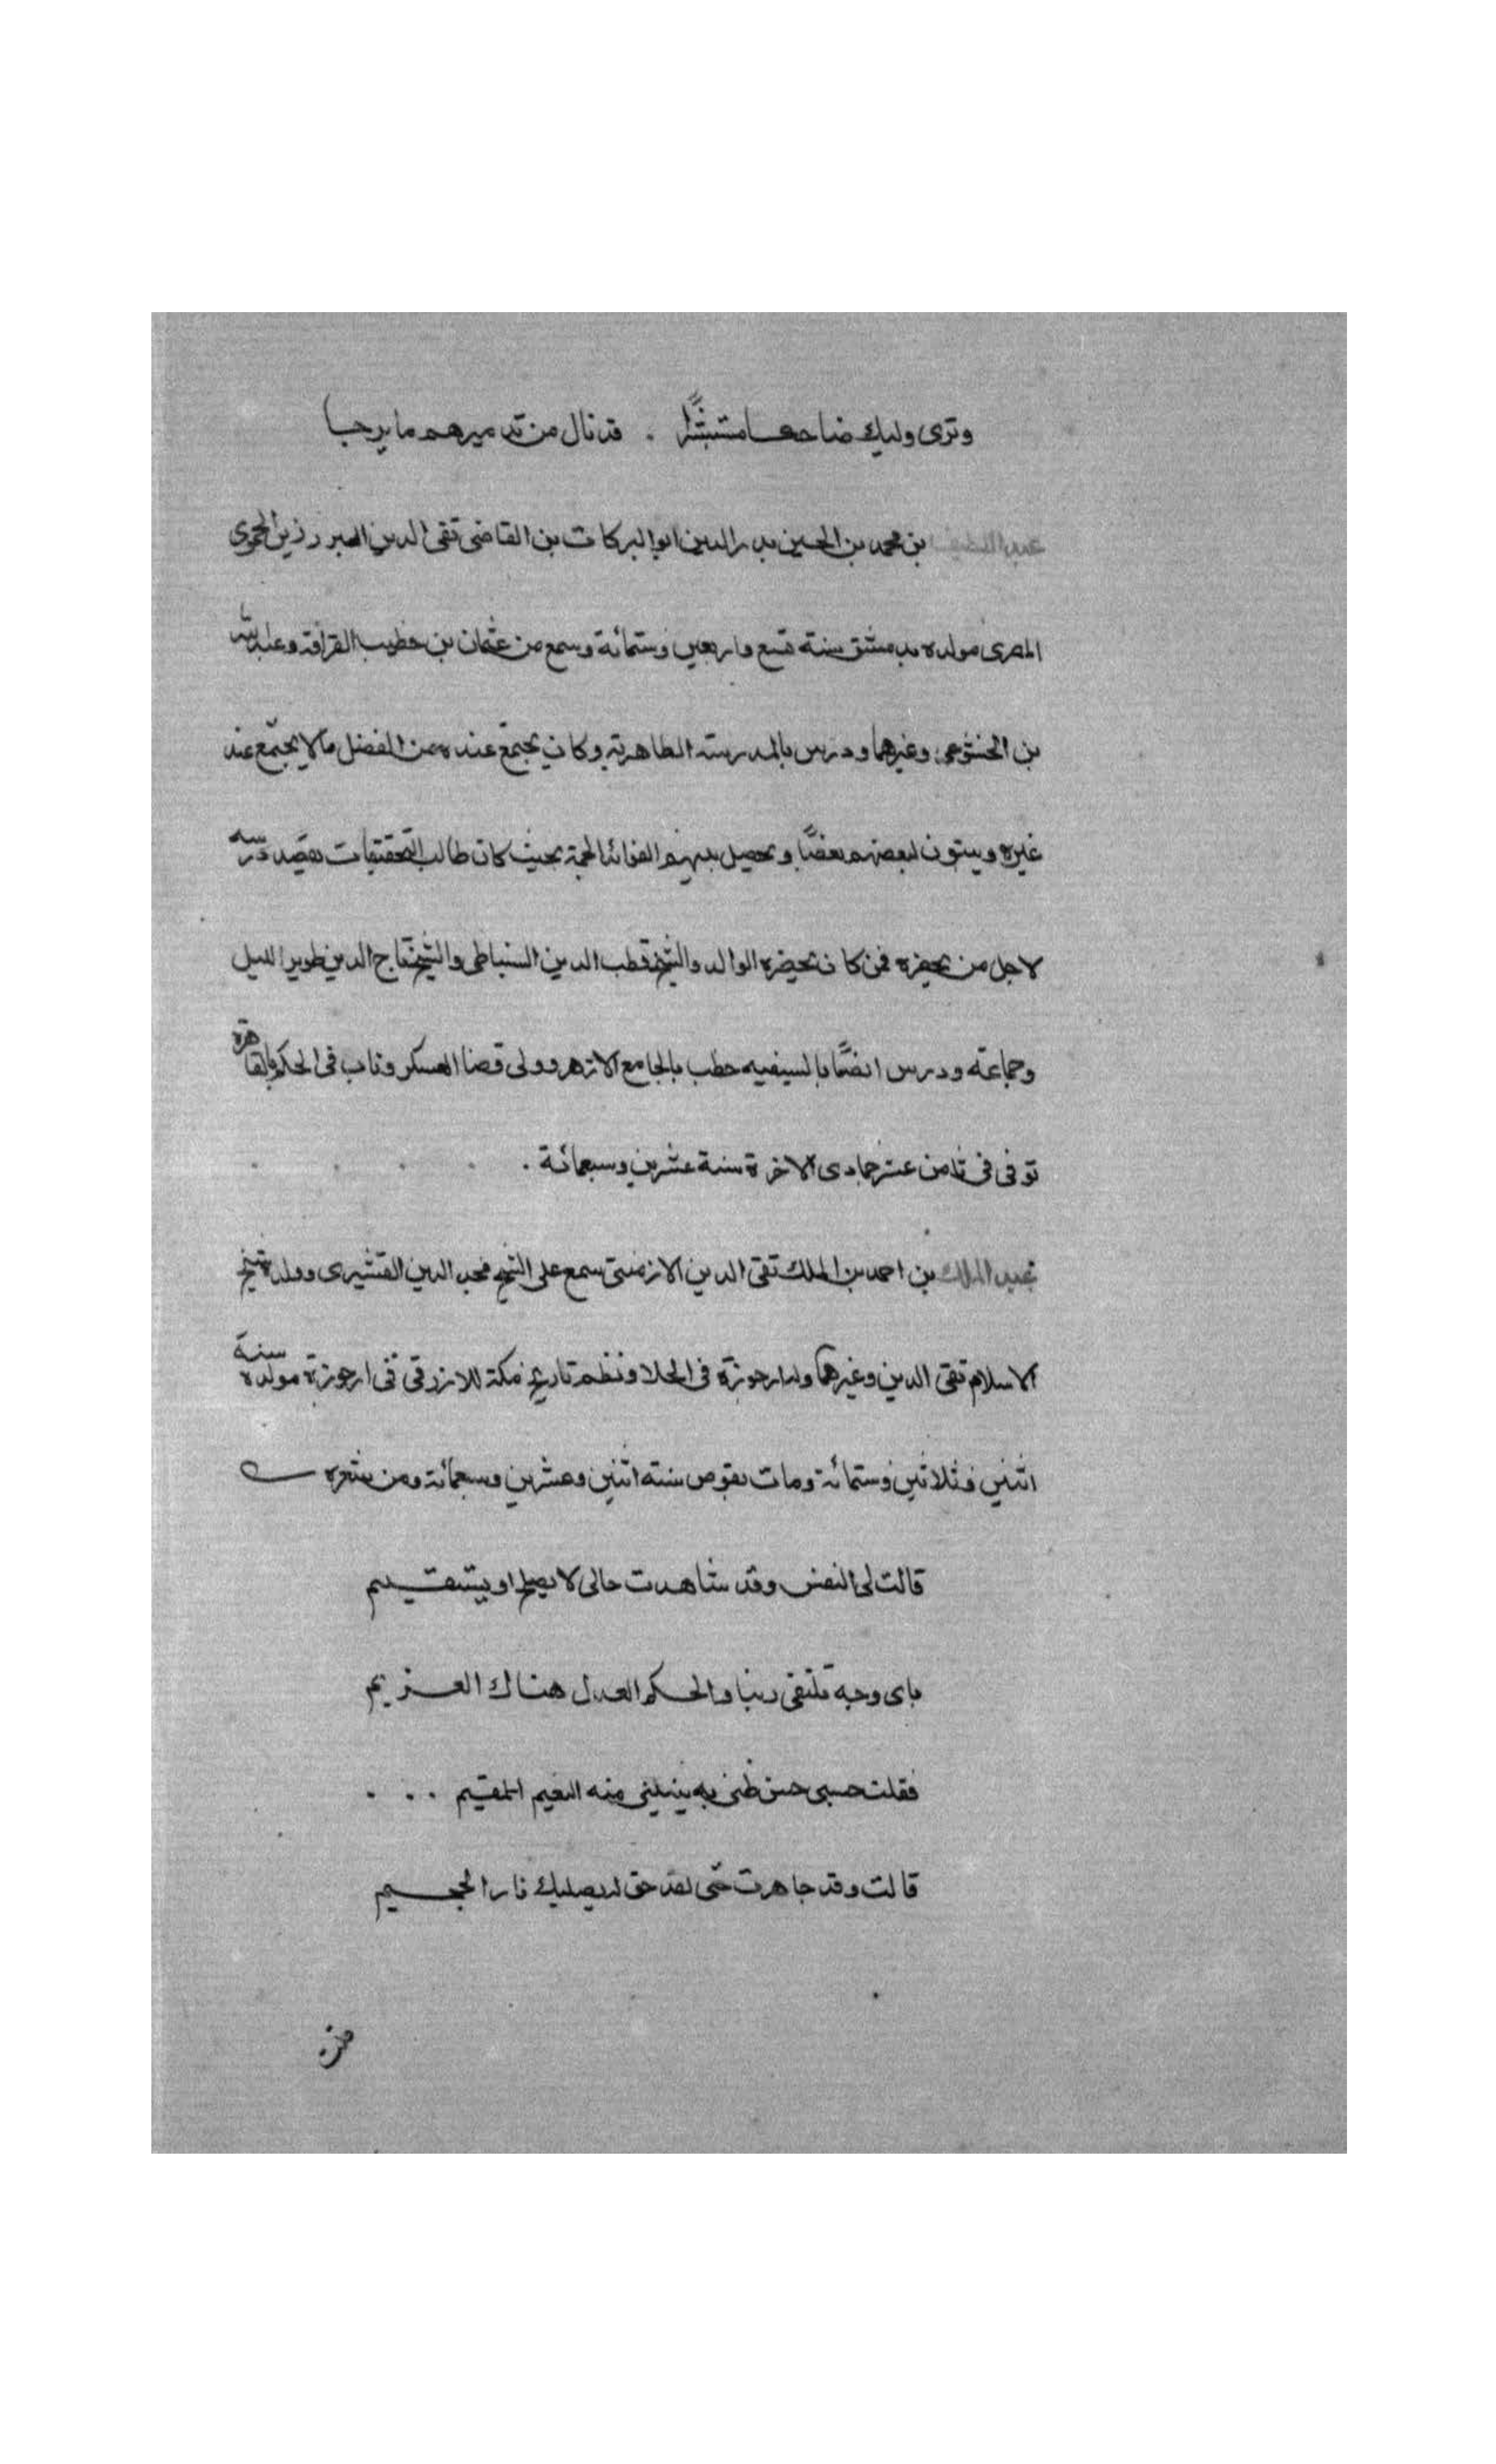 وترى وليك ضاحكا مستبشرًا . قد نال من تدميرهم ما يرجا
عبد اللطيف بن محمد بن الحسين بدر الدين ابو البركات بن القاضى تقى الدين رزين الحموى
المصرى مولده بدمشق سنة تسع واربعين وستمائة وسمع من عثمان بن خطيب القرافة وعبد الله
بن الخشوعى وغيرهما ودرس بالمدرسة الظاهرية وكان يجتمع عنده من الفضل مالا يجتمع عند
غيره لبعضهم بعضًا ويحصل بينهم الفوائد الجمة بحيث كان طالب التحقيقات يقصد درسه
لاجل من يحضره فمن كان يحضره الوالد والشيخ قطب الدين السنباطى والشيخ تاج الدين طوير الليل
وجماعة ودرس ايضًا بالسيفيه خطب بالجامع الازهر وولى قضا العسكر وناب فى الحكم بالقاهرة
توفى فى ثامن عشر جمادى الاخرة سنة عشرين وسبعمائة .
عبد الملك بن احمد بن الملك تقى الدين الارمنتى سمع على الشيخ مجد الدين القشيرى وولده شيخ
الاسلام تقى الدين وغيرهما وله ارجوزة فى الحلا ونظم تاريخ مكة للازرقى فى ارجوزة مولده سنة
اثنين وثلاثين وستمائة ومات بقوص سنة اثنين وعشرين وسبعمائة ومن شعره
قالت لى النفس وقد شاهدت حالى لا يصلح او يستقيم
باى وجه نلتقى ربنا والحكم العدل هناك الغريم
فقلت حسبى حسن ظنى به ينيلنى منه النعيم المقيم . . .
قالت وقد جاهرت حتى لقد حق له يصليك نار الجحيم